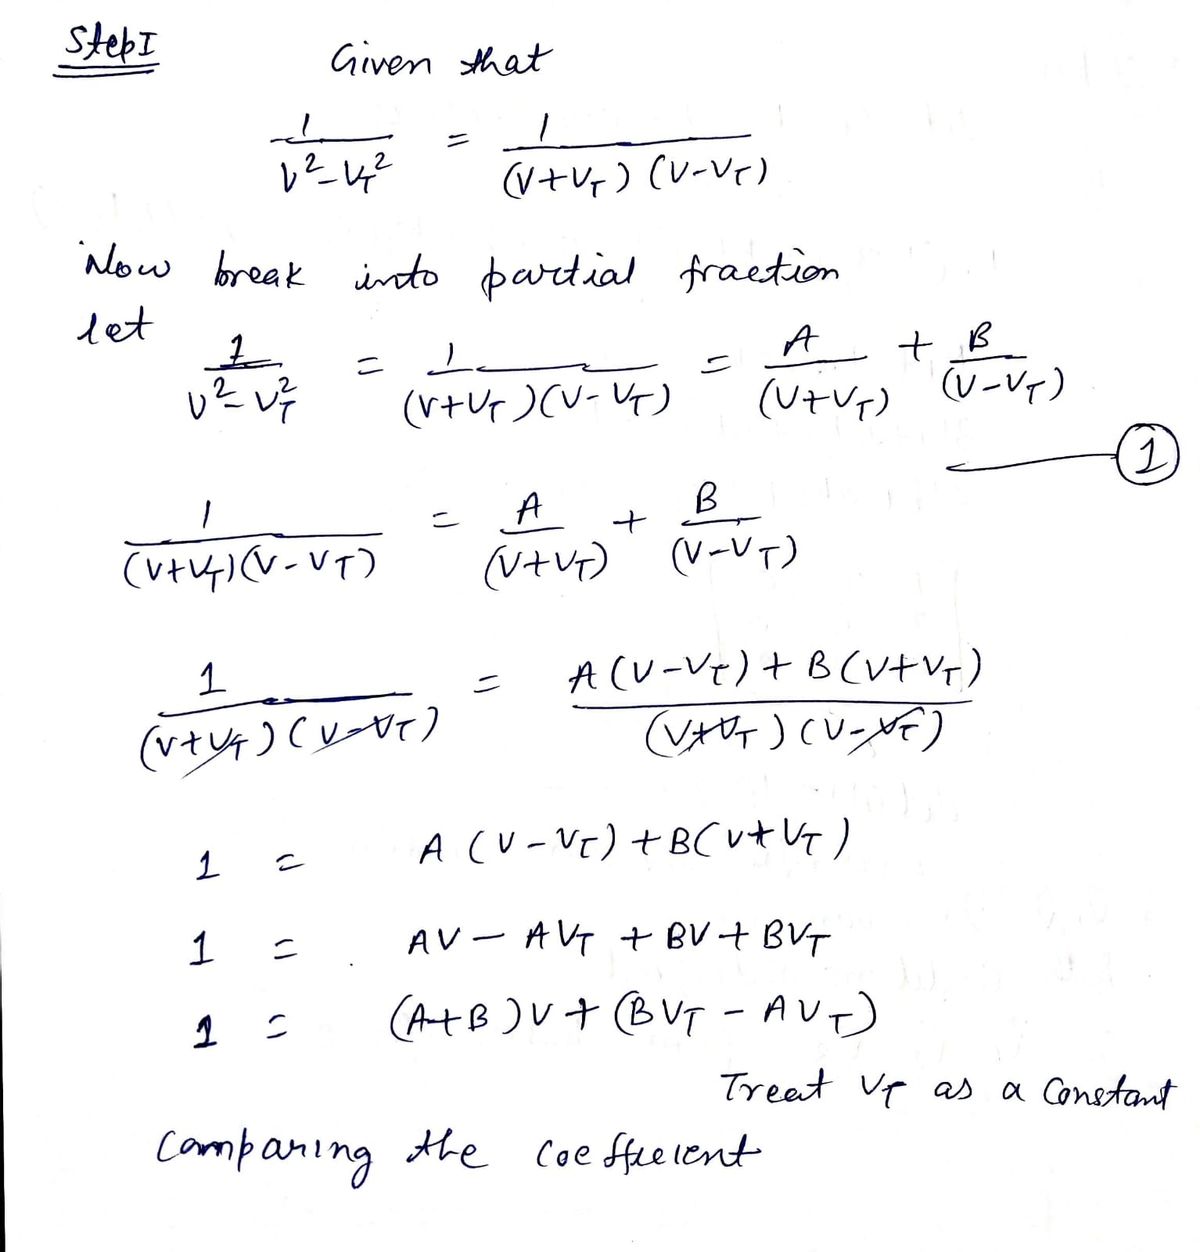 Step I
Given that
1/(V²-V_T²) = 1/((V+V_T)(V-V_T))
Now break into partial fraction
let
1/(V²-V_T²) = 1/((V+V_T)(V-V_T)) = A/(V+V_T) + B/(V-V_T)
1
1/((V+V_T)(V-V_T)) = A/(V+V_T) + B/(V-V_T)
1/((V+V_T)(V-V_T)) = (A(V-V_T)+B(V+V_T))/((V+V_T)(V-V_T))
1 = A(V-V_T)+B(V+V_T)
1 = AV-AV_T+BV+BV_T
1 = (A+B)V+(BV_T-AV_T)
Treat V_T as a Constant
Comparing the coefficient